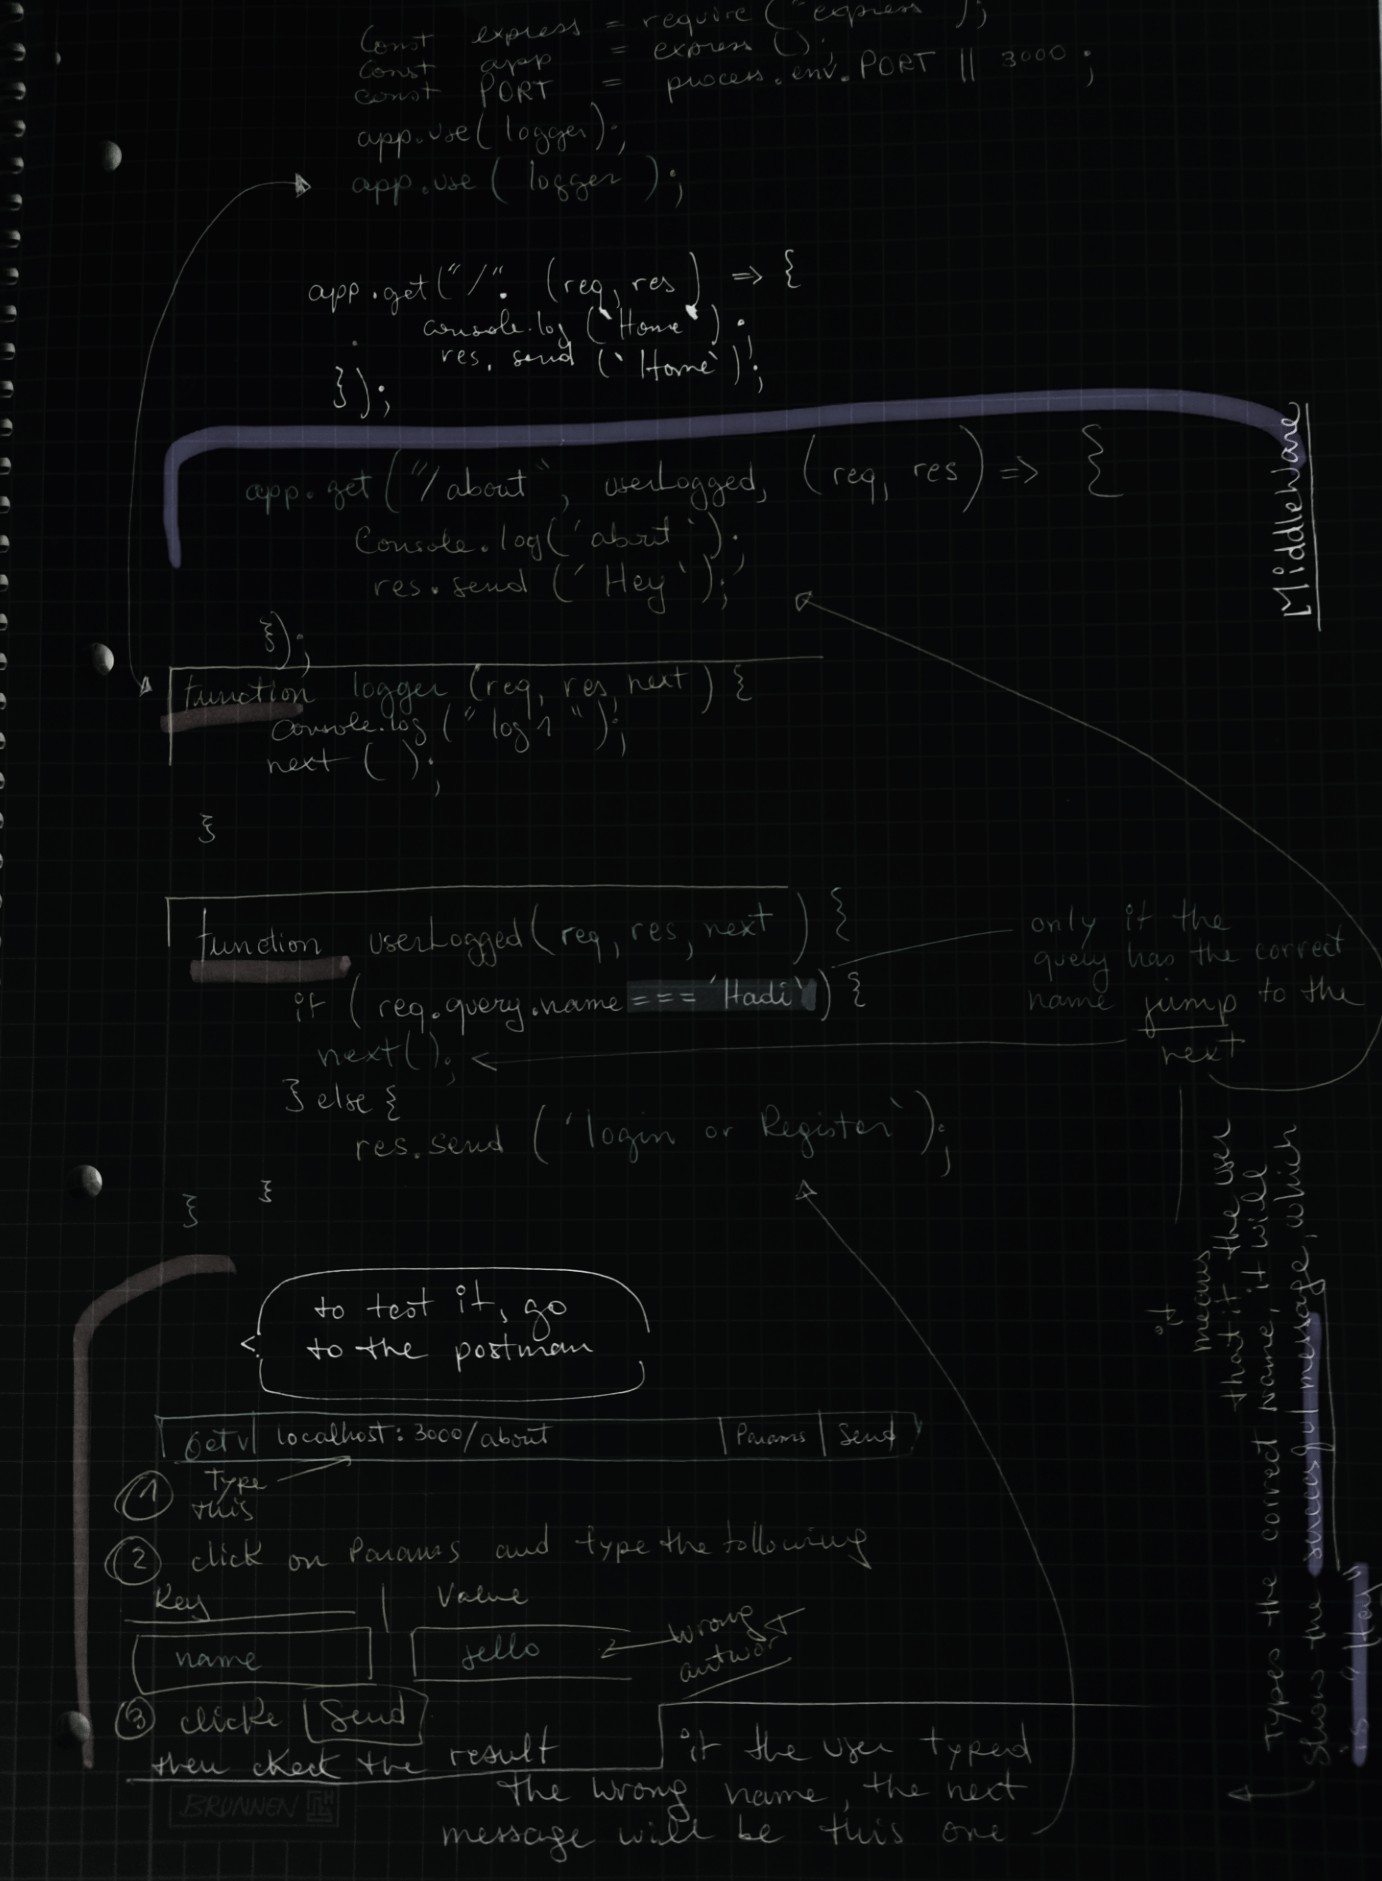 const express = require("express");
const app = express();
const PORT = process.env.PORT || 3000;
app.use(logger);
app.use(logger);
app.get("/". (req, res) => {
console.log(`Home`);
res.send(`Home`);
});
MiddleWare
app.get("/about", userLogged, (req, res) => {
Console.log('about');
res.send('Hey');
});
function logger (req, res, next) {
console.log("log1");
next();
}
function userLogged(req, res, next) {
if (req.query.name === 'Hadi') {
next();
} else {
res.send('login or Register');
}
}
only if the
query has the correct
name jump to the
next
it
means
that if the user
Types the correct name, it will
show the succesful message, which
is "Hey"
to test it, go
to the postman
Get v localhost:3000/about Params Send
1 Type
this
2 click on Params and type the following
Key Value
name jello wrong
3 clicke Send
then check the result
if the user typed
the wrong name, the next
message will be this one
BRUNNEN